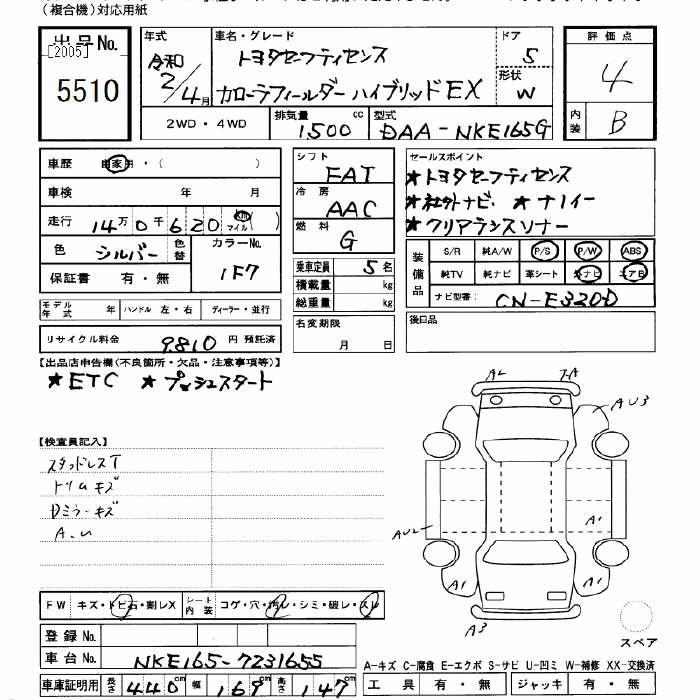 （複合機）対応用紙
出品No.
[2005]
5510
年式
令和
2/4月
車名・グレード
トヨタセーフティセンス
カローラフィールダー ハイブリッド EX
ドア
5
形状
W
評価点
4
内装
B
2WD・4WD
排気量
1500 cc
型式
DAA-NKE165G
車歴 自家用・( )
車検 年 月
走行 14万0千620 km マイル ( )
色 シルバー 色替
カラーNo.
1F7
保証書 有・無
モデル年式 年
ハンドル 左・右
ディーラー・並行
リサイクル料金 9810 円 預託済
シフト
FAT
冷房
AAC
燃料
G
乗車定員 5名
積載量 kg
総重量 kg
名変期限
月 日
セールスポイント
★トヨタセーフティセンス
★社外ナビ ★ナノイー
★クリアランスソナー
装備品
S/R 純A/W P/S P/W ABS
純TV 純ナビ 革シート 外ナビ エアB
ナビ型番: CN-E320D
後日品
【出品店申告欄(不良箇所・欠品・注意事項等)】
★ETC ★プッシュスタート
【検査員記入】
スタッドレスT
トリムキズ
Dミラーキズ
A.U
AL
AU3
A1
A1
A1
A3
FW キズ・トビ石・割レX
シート内装 コゲ・穴・汚レ・シミ・破レ・スレ
登録No.
車台No. NKE165-7231655
車庫証明用 長さ 440cm 幅 169cm 高さ 147cm
スペア
A-キズ C-腐食 E-エクボ S-サビ U-凹ミ W-補修 XX-交換済
工具 有・無 ジャッキ 有・無